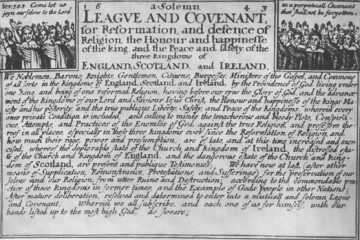 Ier: 50.5 Come let us
joyn our selves to the Lord
in a perpetuall Covenant
that shall not be forgotten.
16 a Solemn 43
LEAGVE AND COVENANT,
for Reformation, and defence of
Religion, the Honour and happinesse
of the king, and the Peace and safety of the
three kingdoms of
ENGLAND, SCOTLAND, and IRELAND.
We Noblemen, Barons, Knights, Gentlemen, Citizens, Burgesses, Ministers of the Gospel, and Commons
of all sorts in the kingdoms of England, Scotland, and Ireland, by the Providence of God living under
one King, and being of one reformed Religion, having before our eyes the Glory of God, and the advancement
of the kingdome of our Lord and Saviour Iesus Christ, the Honour and happinesse of the kings Majesty
and his posterity, and the true publique Liberty, Safety, and Peace of the kingdoms, wherein every
ones private Condition is included, and calling to minde the treacherous and bloody Plots, Conspiracies,
Attempts, and Practices of the Enemies of God, against the true Religion, and professors thereof
in all places, especially in these three kingdoms ever since the Reformation of Religion, and
how much their rage, power and presumption, are of late, and at this time increased and exercised,
whereof the deplorable state of the Church and kingdom of Ireland, the distressed estate
of the Church and kingdom of England, and the dangerous estate of the Church and kingdom
of Scotland, are present and publique Testimonies: We have now at last, (after other
means of Supplication, Remonstrance, Protestations, and Sufferings) for the preservation of our
selves and our Religion, from utter Ruine and Destruction, according to the commendable practice
of these kingdoms in former times, and the Example of Gods people in other Nations;
After mature deliberation, resolved and determined to enter into a mutuall and solemn League
and Covenant. Wherein we all subscribe, and each one of us for himself, with our
hands lifted up to the most high God, do sweare;